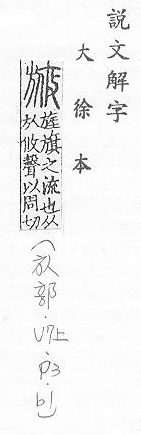 說文解字
大徐本
旌旗之流也从
㫃攸聲以周切
(㫃部．V7上．P3．b1)